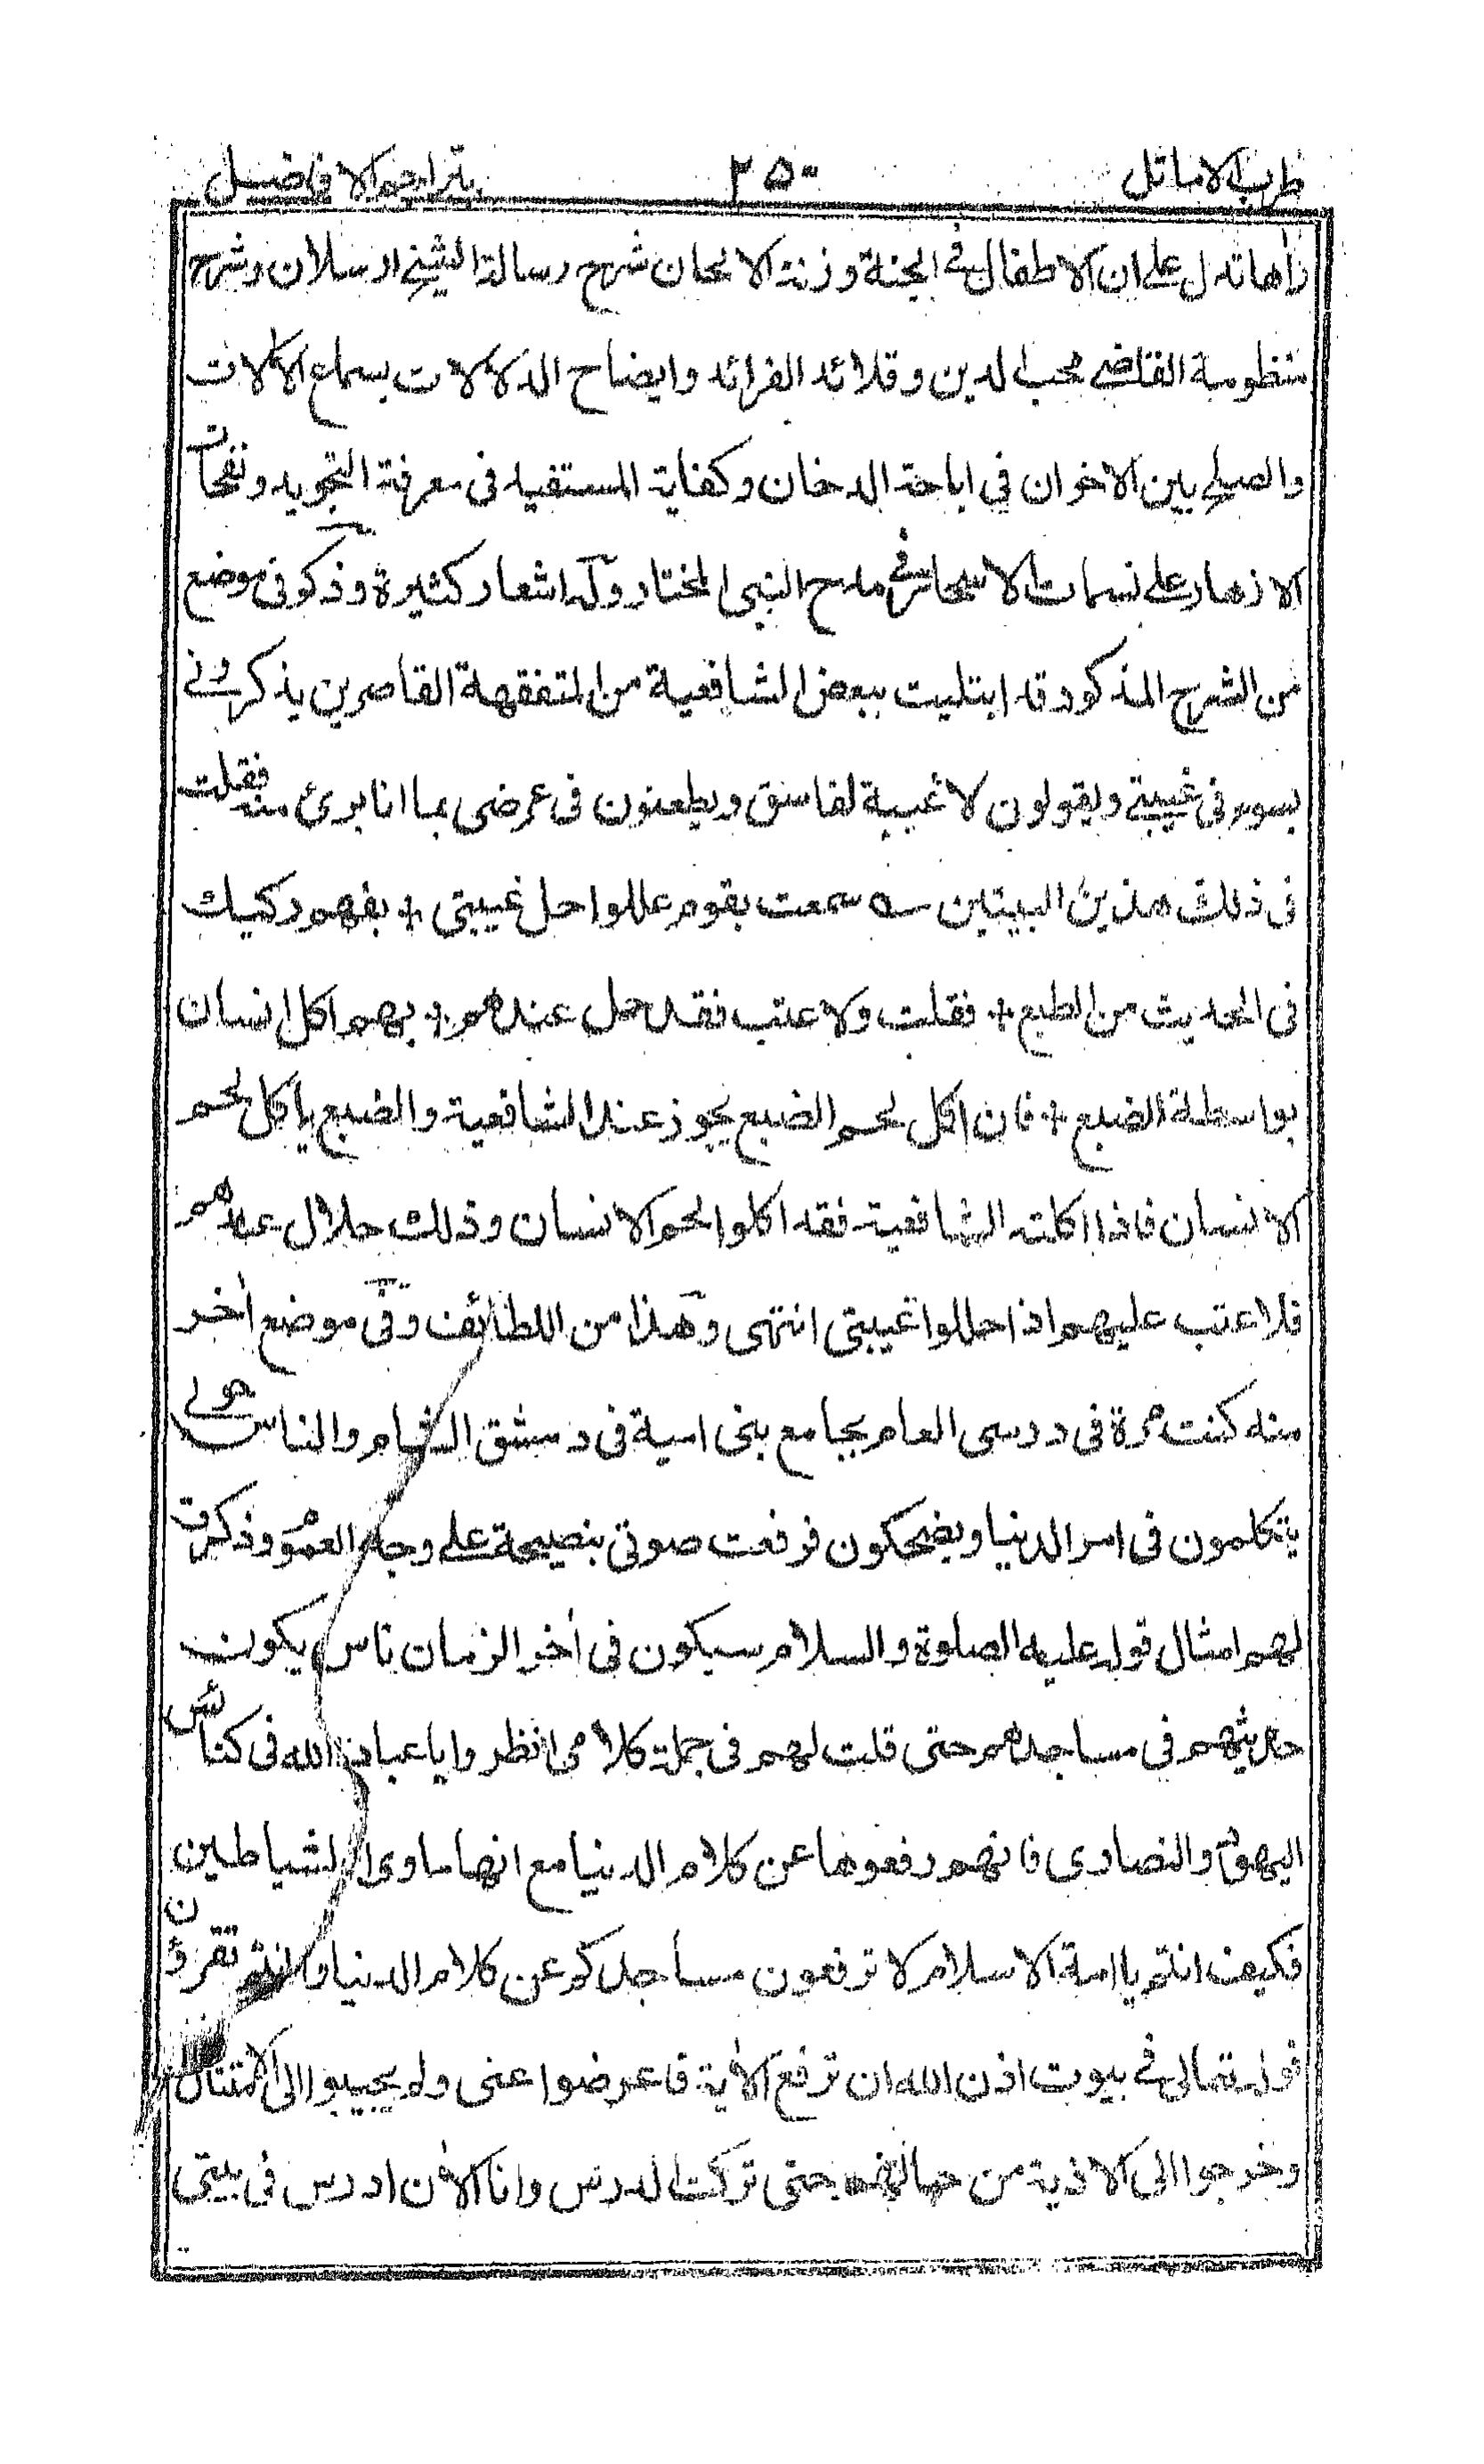 طرب الاماثل ٢٥٠ بتراجم الافاضل
راها تدل على ان الاطفال في الجنة و رنة الالحان شرح رسالة الشيخ ارسلان وشرح
منظومة القاضي محب الدين و قلائد الفرائد وايضاح الدلالات بسماع الالات
والصلح بين الاخوان في اباحة الدخان وكفاية المستفيد فى معرفة التجويد ونفحات
الازهار على نسمات الاسحار في مدح النبي المختار وله اشعار كثيرة وذكر في موضع
من الشرح المذكور قد ابتليت ببعض الشافعية من المتفقهة القاصرين يذكروني
بسوء فى غيبتي ويقولون لا غيبة لفاسق ويطعنون فى عرضي بما انا برئ منه فقلت
فى ذلك هذين البيتين سه سمعت بقوم عللوا حل غيبتى + بفهم ركيك
فى الحديث من الطبع + فقلت ولا عتب فقد حل عندهم + بهم اكل انسان
بواسطة الضبع + فان اكل لحم الضبع يجوز عند الشافعية والضبع يأكل لحم
الانسان فاذا اكلته الشافعية فقد اكلوا لحم الانسان وذلك حلال عندهم
فلا عتب عليهم اذا حللوا غيبتي انتهى وهذا من اللطائف وفي موضع أخر
منه كنت مرة فى درسى العام بجامع بنى امية فى دمشق الشام والناس حولي
يتكلمون فى امر الدنيا ويضحكون فرفعت صوتي بنصيحة على وجه العموم وذكرت
لهم امثال قوله عليه الصلوة والسلام سيكون فى أخر الزمان ناس يكون
حديثهم فى مساجدهم حتى قلت لهم فى جملة كلامى انظروا يا عباد الله فى كنائس
اليهود والنصارى فانهم رفعوها عن كلام الدنيا مع انها ماوى الشياطين
فكيف انتم يا امة الاسلام لا ترفعون مساجدكم عن كلام الدنيا وانتم تقرؤن
قوله تعالى في بيوت اذن الله ان ترفع الأية فاعرضوا عنى ولم يجيبوا الى الامتثال
وخرجوا الى الاذية من جهالتهم حتى تركت الدرس وانا الأن ادرس فى بيتى